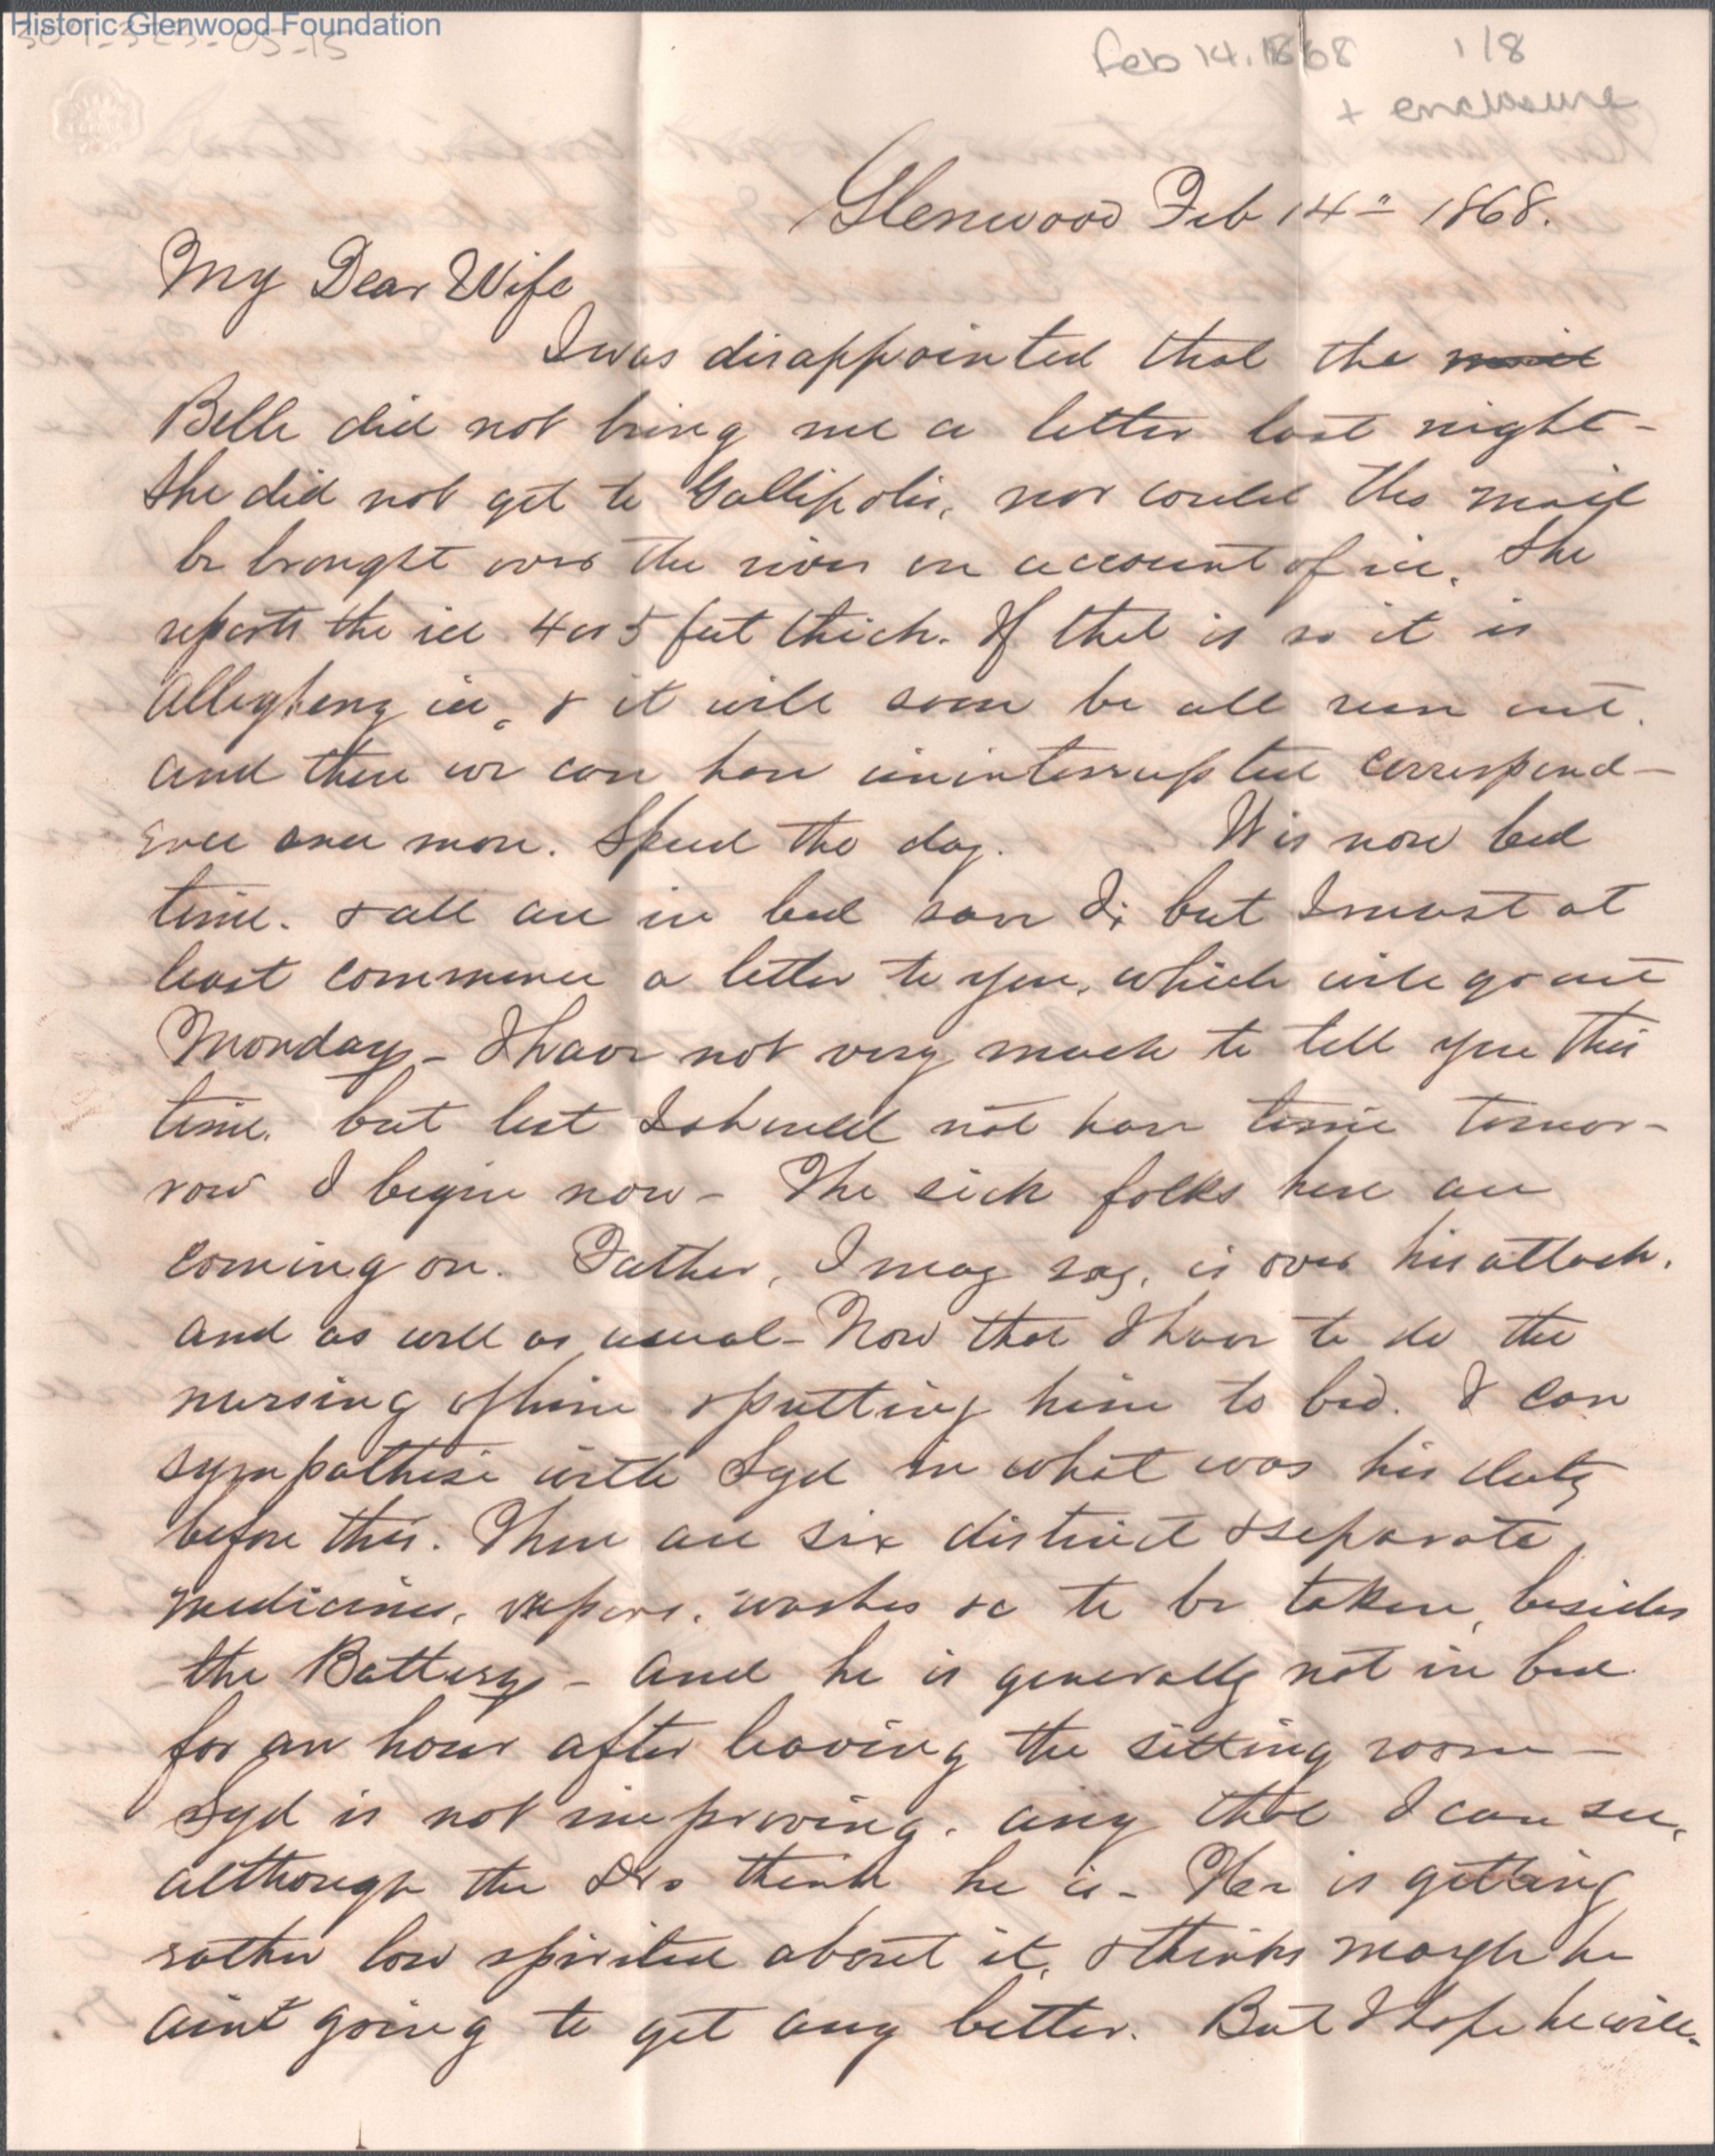 Historic Glenwood Foundation
Feb 14. 1868 1/8
+ enclosure
Glenwood Feb 14" 1868.
My Dear Wife
I was disappointed that the mail
Belle did not bring me a letter last night -
She did not get to Gallipolis, nor could the mail
be brought over the river on account of ice. She
reports the ice 4 or 5 feet thick. If that is so it is
Allegheny ice, & it will soon be all run out.
and then we can have uninterrupted correspond-
ence once more. Speed the day. It is now bed
time. & all are in bed save I; but I must at
least commence a letter to you, which will go out
Monday - I have not very much to tell you this
time. but lest I should not have time tomor-
row I begin now - The sick folks here are
coming on. Father, I may say, is over his attack.
and as well as usual - Now that I have to do the
nursing of him & putting him to bed. I can
sympathise with Syd in what was his duty
before this. There are six distinct & separate
medicines, vapors, washes &c to be taken, besides
the Battery - and he is generally not in bed
for an hour after leaving the sitting room -
Syd is not improving. any that I can see,
although the Drs think he is - He is getting
rather low spirited about it, & thinks maybe he
aint going to get any better. But I hope he will -